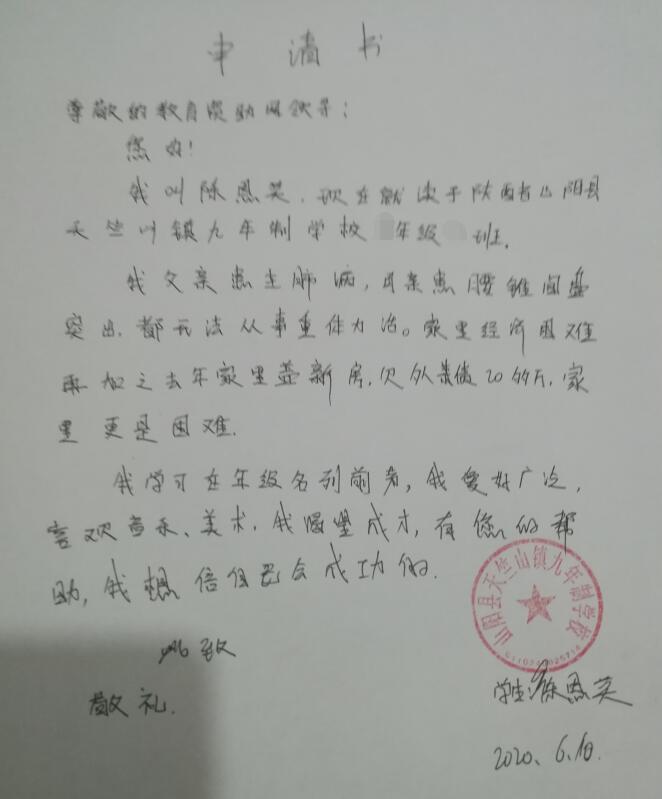 申请书
尊敬的教育资助网领导：
您好！
我叫陈恩英，现在就读于陕西省山阳县
天竺山镇九年制学校 年级 班。
我父亲患尘肺病，母亲患腰锥间盘
突出，都无法从事重体力活。家里经济困难
再加之去年家里盖新房，欠外债20多万，家
里更是困难。
我学习在年级名列前茅，我爱好广泛，
喜欢音乐、美术，我渴望成才，有您的帮
助，我想信自己会成功的。
此致
敬礼.
山阳县天竺山镇九年制学校
学生：陈恩英
2020、6.10